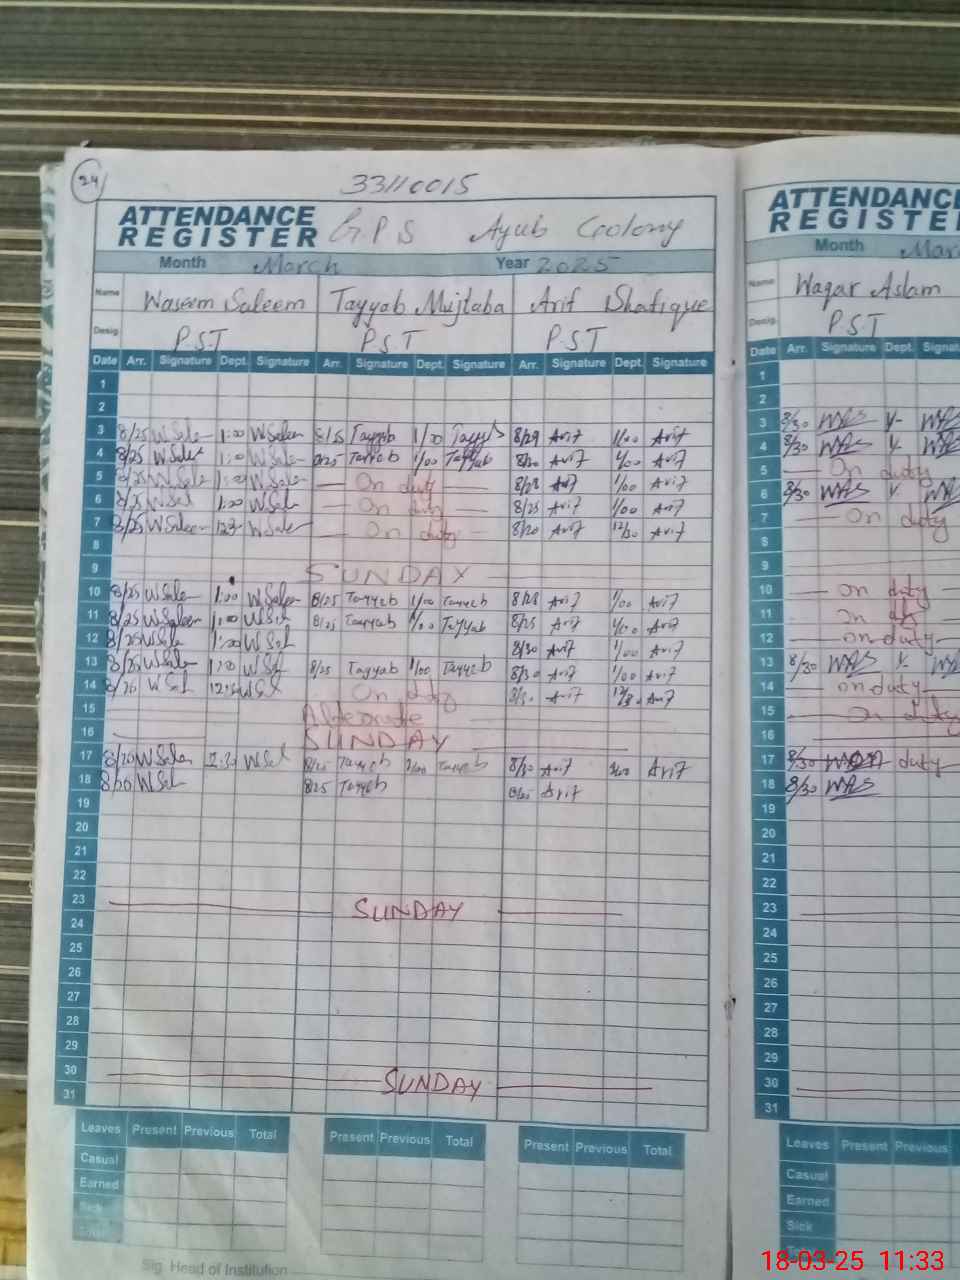 24
33110015
ATTENDANCE REGISTER G.P.S Ayub Coolony
Month March Year 2025
Name Waseem Saleem Tayyab Mujtaba Arif Shafique
Desig. P.S.T P.S.T P.S.T
Date Arr. Signature Dept. Signature Arr. Signature Dept. Signature Arr. Signature Dept. Signature
1
2
3 8/25 W Sale 1:00 W Saleem 8/25 Tayyab 1/00 Tayyab 8/29 Arif 1/00 Arif
4 8/25 W Sale 1:00 W Sale 8/25 Tayyab 1/00 Tayyab 8/30 Arif 1/00 Arif
5 8/25 W Sale 1:00 W Sale On duty 8/28 Arif 1/00 Arif
6 8/25 W Sal 1:00 W Sale On duty 8/25 Arif 1/00 Arif
7 8/25 W Saleem W Sale On duty 8/20 Arif 12/30 Arif
8
9 SUNDAY
10 8/25 W Sale 1:00 W Saleem 8/25 Tayyab 1/00 Tayyab 8/28 Arif 1/00 Arif
11 8/25 W Saleem 1:00 W Sal 8/25 Tayyab 1/00 Tayyab 8/25 Arif 1/00 Arif
12 8/25 W Sale 1:00 W Sal 8/30 Arif 1/00 Arif
13 8/25 W Sale 1:00 W Sal 8/25 Tayyab 1/00 Tayyab 8/30 Arif 1/00 Arif
14 8/20 W Sal W Sal On duty Arif Arif
15 Alternate
16 SUNDAY
17 8/20 W Sale 2:30 W Sal 8/25 Tayyab Tayyab 8/30 Arif Arif
18 8/20 W Sal 8/25 Tayyab 8/25 Arif
19
20
21
22
23 SUNDAY
24
25
26
27
28
29
30 SUNDAY
31
Leaves Present Previous Total Present Previous Total Present Previous Total
Casual
Earned
Sick
Total
Sig. Head of Institution
ATTENDANCE REGISTER
Month
Name Waqar Aslam
Desig. P.S.T
Date Arr. Signature Dept.
1
2
3 8/30 WAS
4 8/30 WAS
5 On duty
6 8/30 WAS
7 On duty
8
9
10 On duty
11 On duty
12 On duty
13 8/30 WAS
14 On duty
15 On duty
16
17 8/30 duty
18 8/30 WAS
19
20
21
22
23
24
25
26
27
28
29
30
31
Leaves Present Previous
Casual
Earned
Sick
18-03-25 11:33